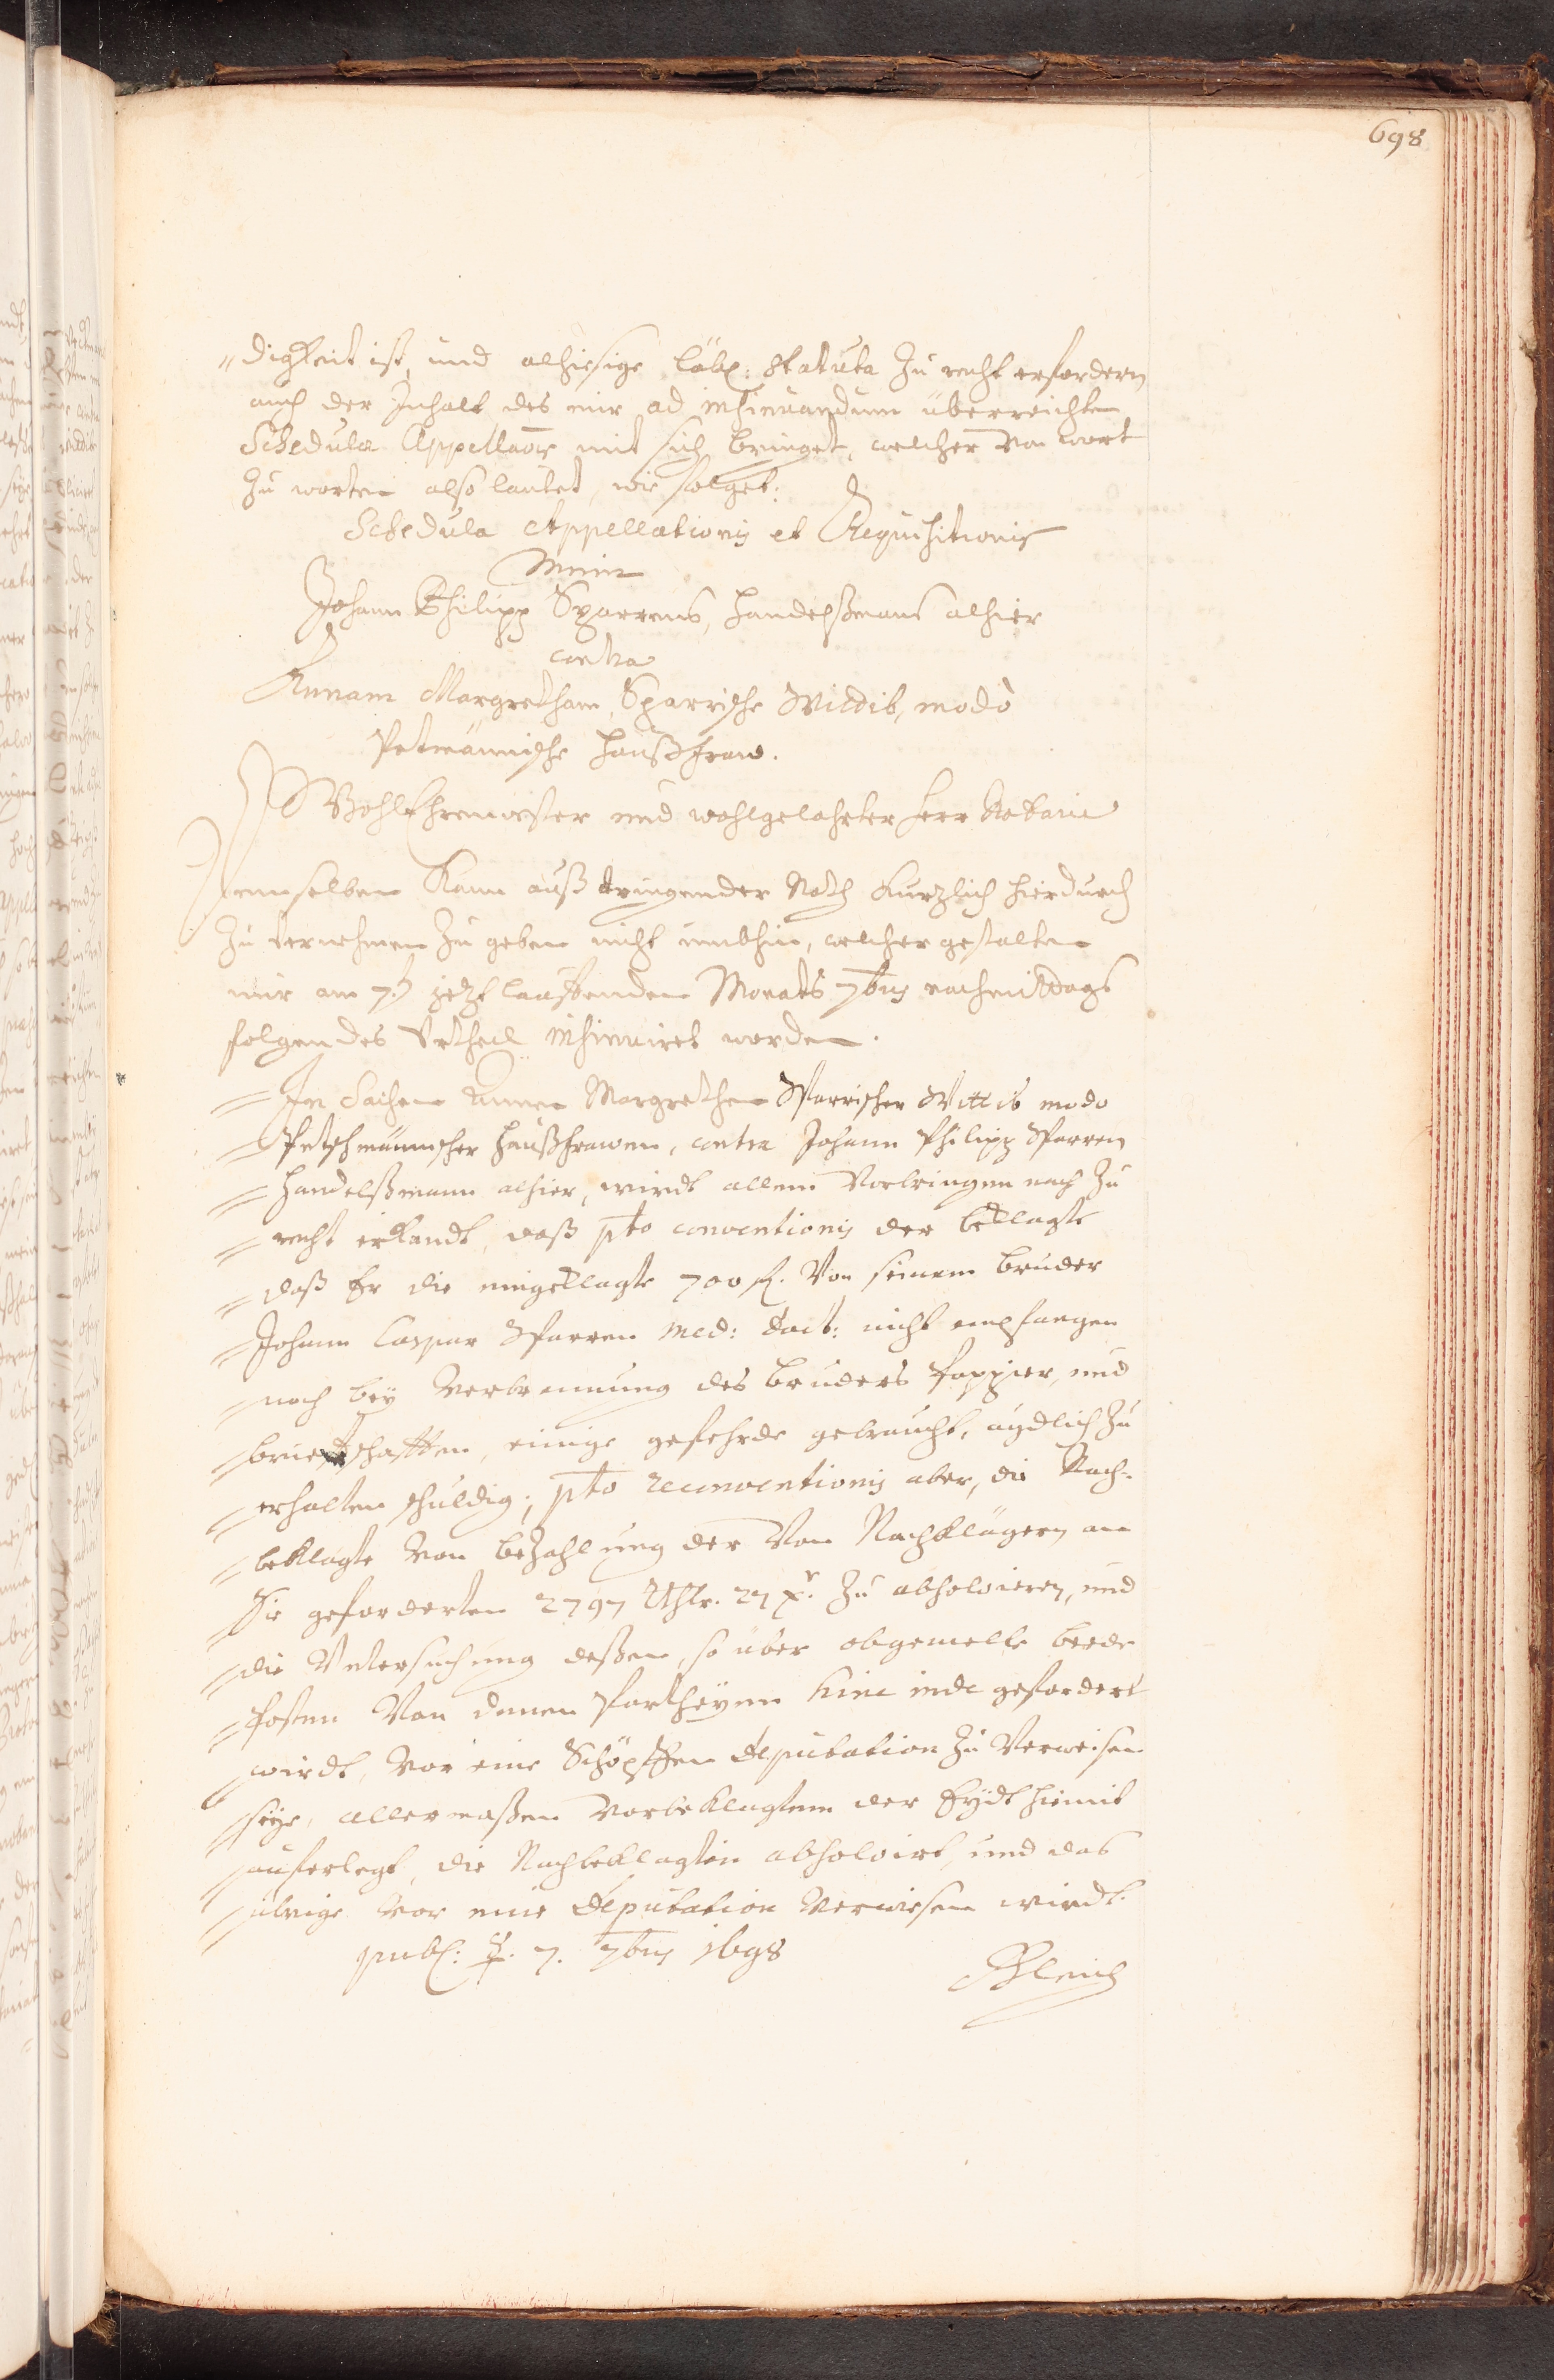 698
digkeit ist, und alhiesige löbl: statuta zu recht erfordern
auch der Inhalt des mir ad insinuandum überreichten
Schedulae Appellaõis mit sich bringet, welcher von wort
zu worten also lautet, wie folget:
Schedula Appellationis et Requisitionis
Mein
Johann Philipp Sparrens, Handelßmans alhier
contra
Annam Margretham, Sparrische Wittib, modò
Petmännische Haußfraw.
WohlEhrenvester und wohlgelahrter Herr Notarie
Demselben kann auß tringender Noth kurzlich hierdurch
zu vernehmen zu geben nicht umbhin, welcher gestalten
mir am 7.t jetzt lauffenden Monats 7bris nachmittags
folgendes Urtheil insinuiret worden.
In Sachen Annen Margrethen Sparrischer Wittib modo
Petschmännischer Haußfrawen, contra Johann Philipp Sparren
Handelßmann alhier, wirdt allem Vorbringen nach zu
recht erkandt, daß pto conventionis der beklagte
daß Er die eingeklagte 700 fl. von seinem bruder
Johann Caspar Sparren Med: Doct: nicht empfangen
noch bey Verbrennung des bruders Pappier, und
brieffschafften, einige gefehrde gebraucht, aydlich zu
erhalten schuldig; pto reconventionis aber, die Nach-
beklagte von bezahlung der von Nachklägern an
Sie geforderten 2797 Rthlr. 27 xr. zu absolvieren, und
die Untersuchung deßen, so über obgemelte beede
Posten von denen Partheyen hinc inde gefordert
wirdt, vor eine Schöpffen Deputation zu verweisen
seye, allermaßen Vorbeklagtem der Eydt hiemit
auferlegt, die Nachbeklagtin absolvirt, und das
übrige vor eine Deputation verwiesen wirdt.
publ: ☿. 7. 7bris 1698